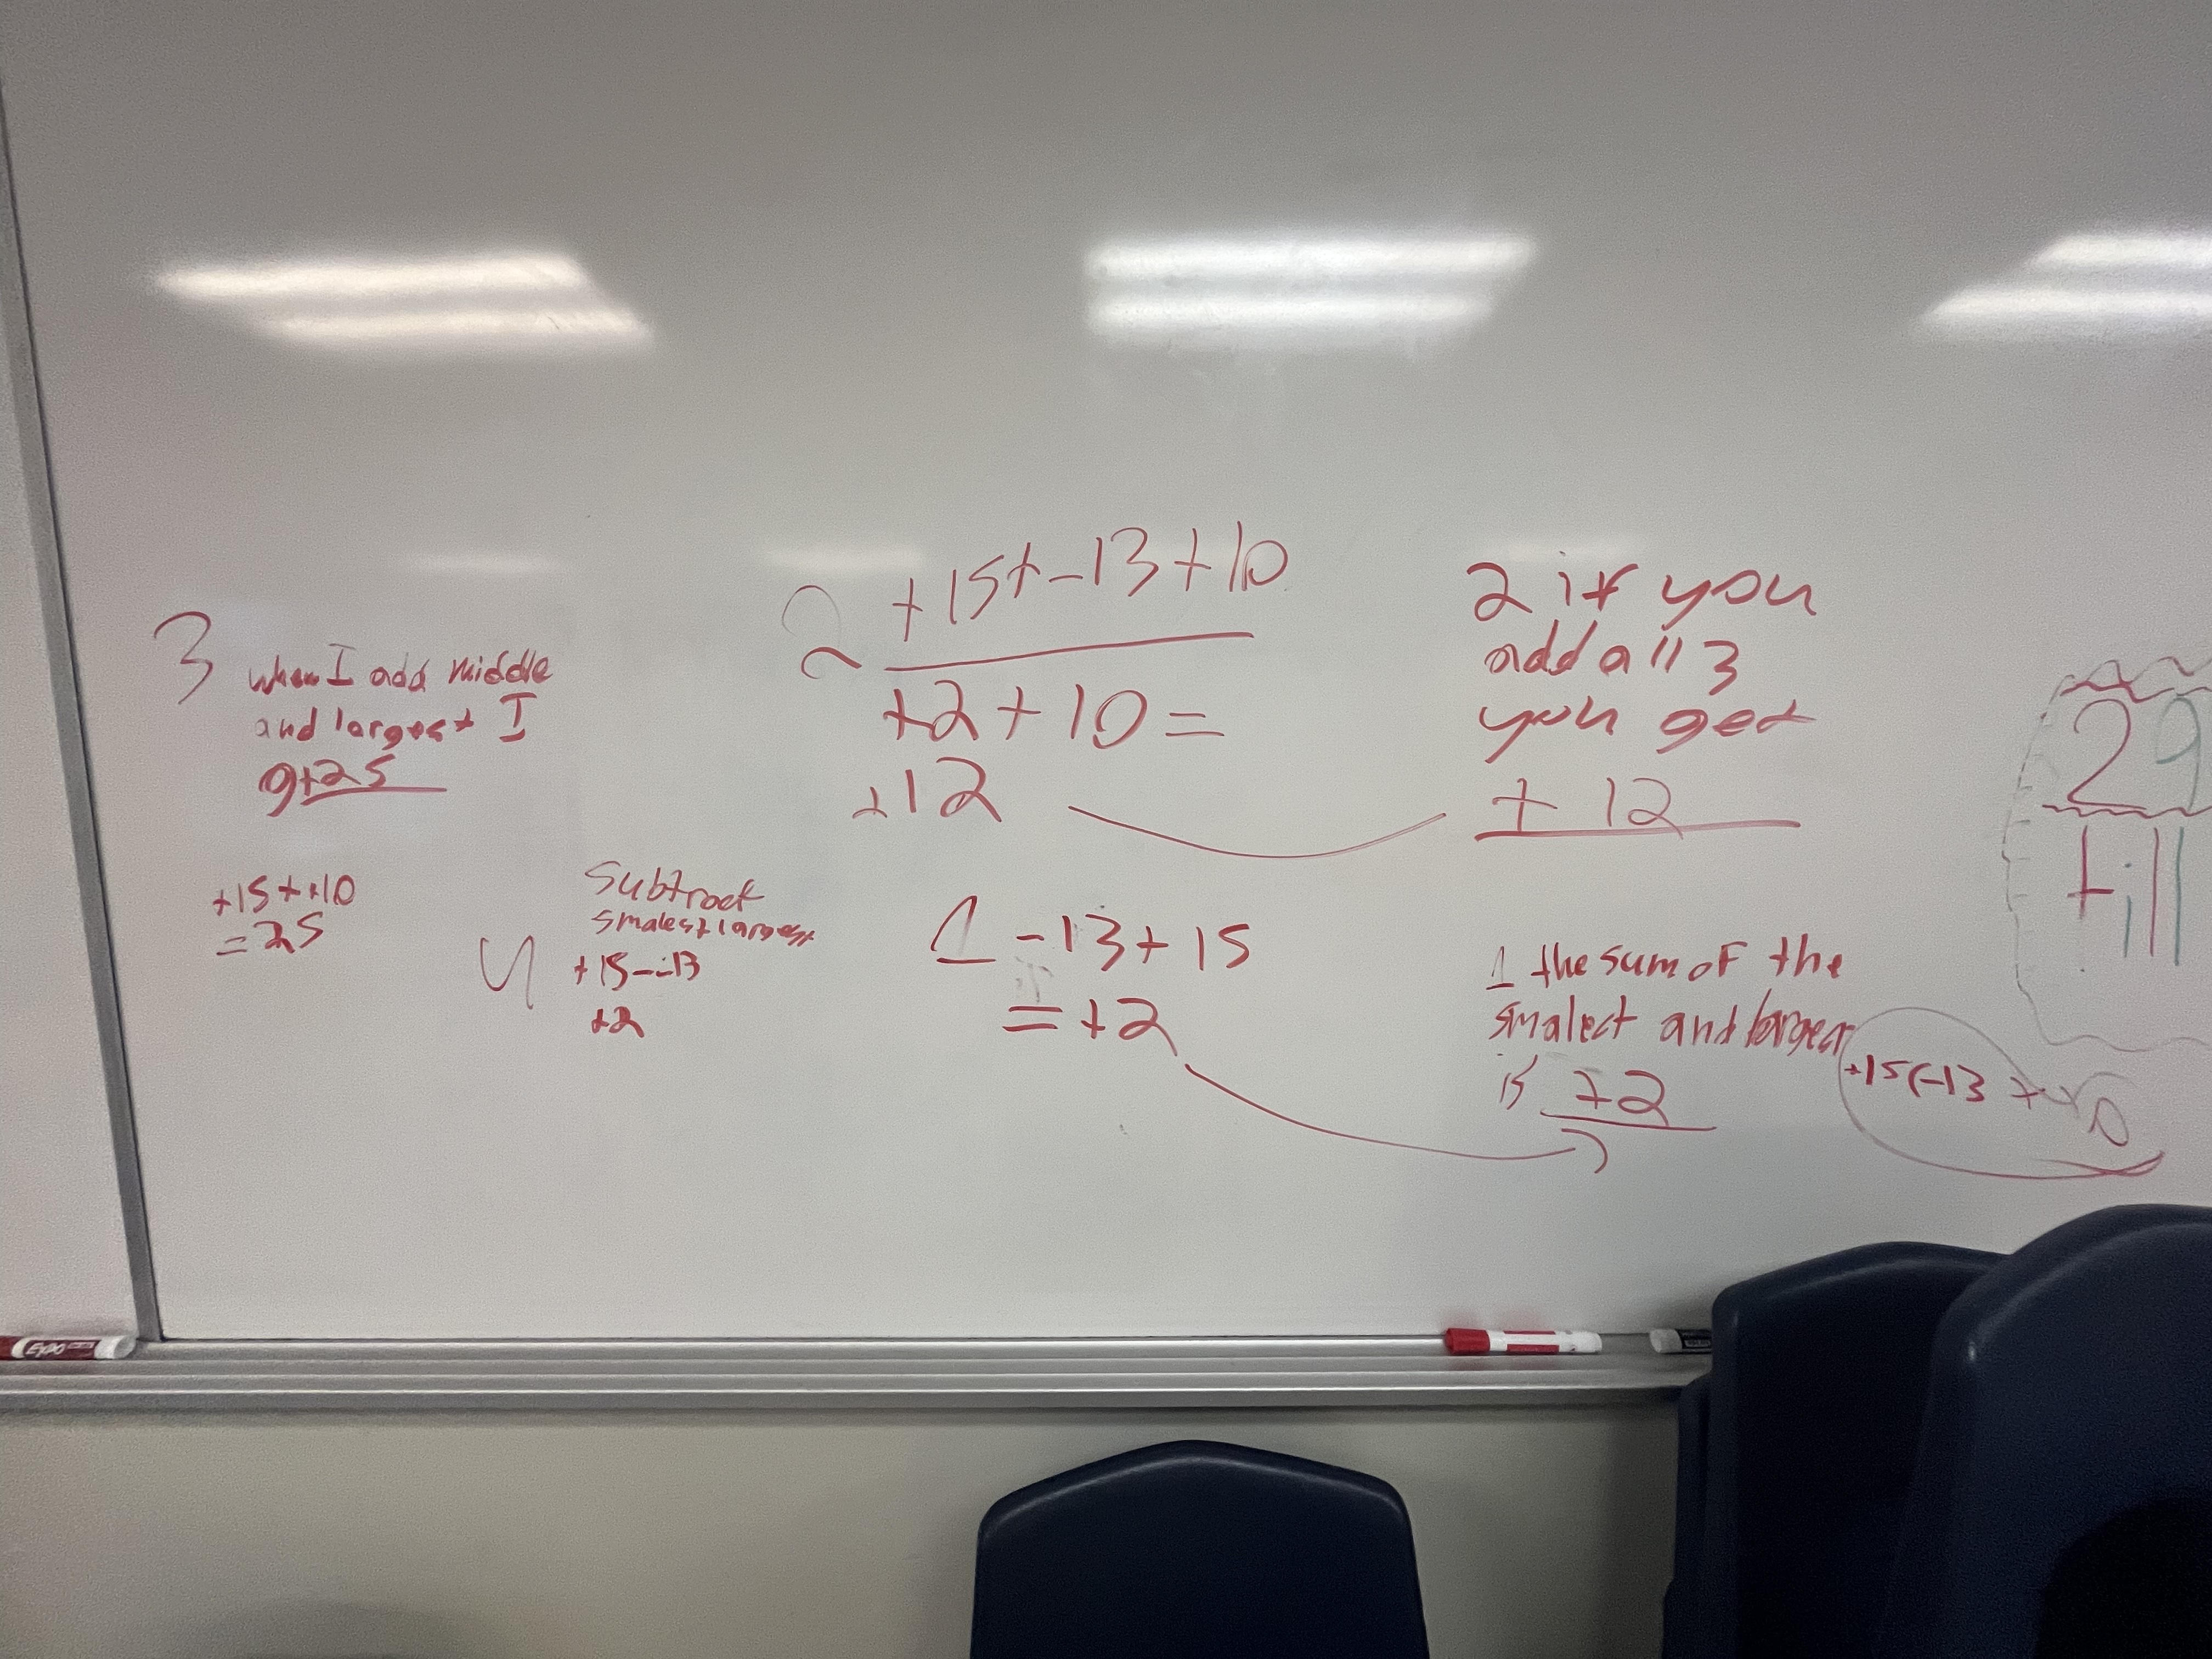 3 when I add middle
and largest I
g+25
+15++10
= 25
2 +15+-13+10
+2+10=
+12
2 if you
add all 3
you get
+ 12
4 Subtract
smalest largest
+15--13
+2
1 -13+15
= +2
1 the sum of the
smalest and larges
is +2
+15(-13
29
till
EXPO